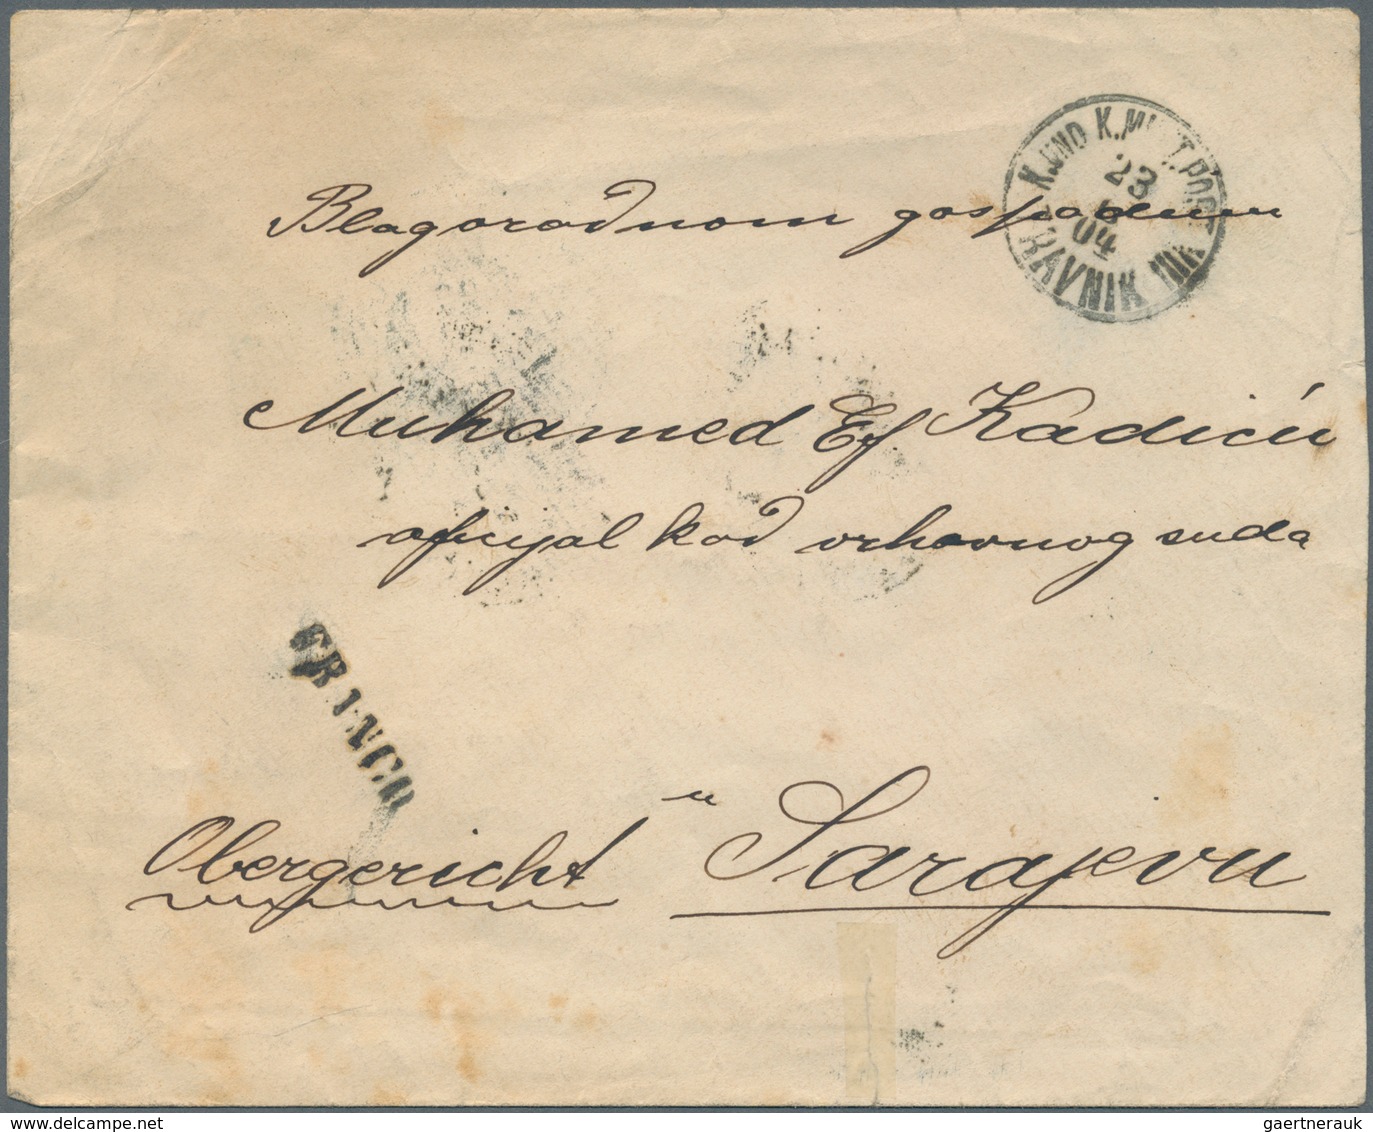 K. UND K. MILIT. POST
23
04
TRAVNIK
Blagorodnom gospodinu
Muhamed Ef. Kadiću
oficijal kod vrhovnog suda
FRANCO
u
Obergericht Sarajevu
gaertnerauk